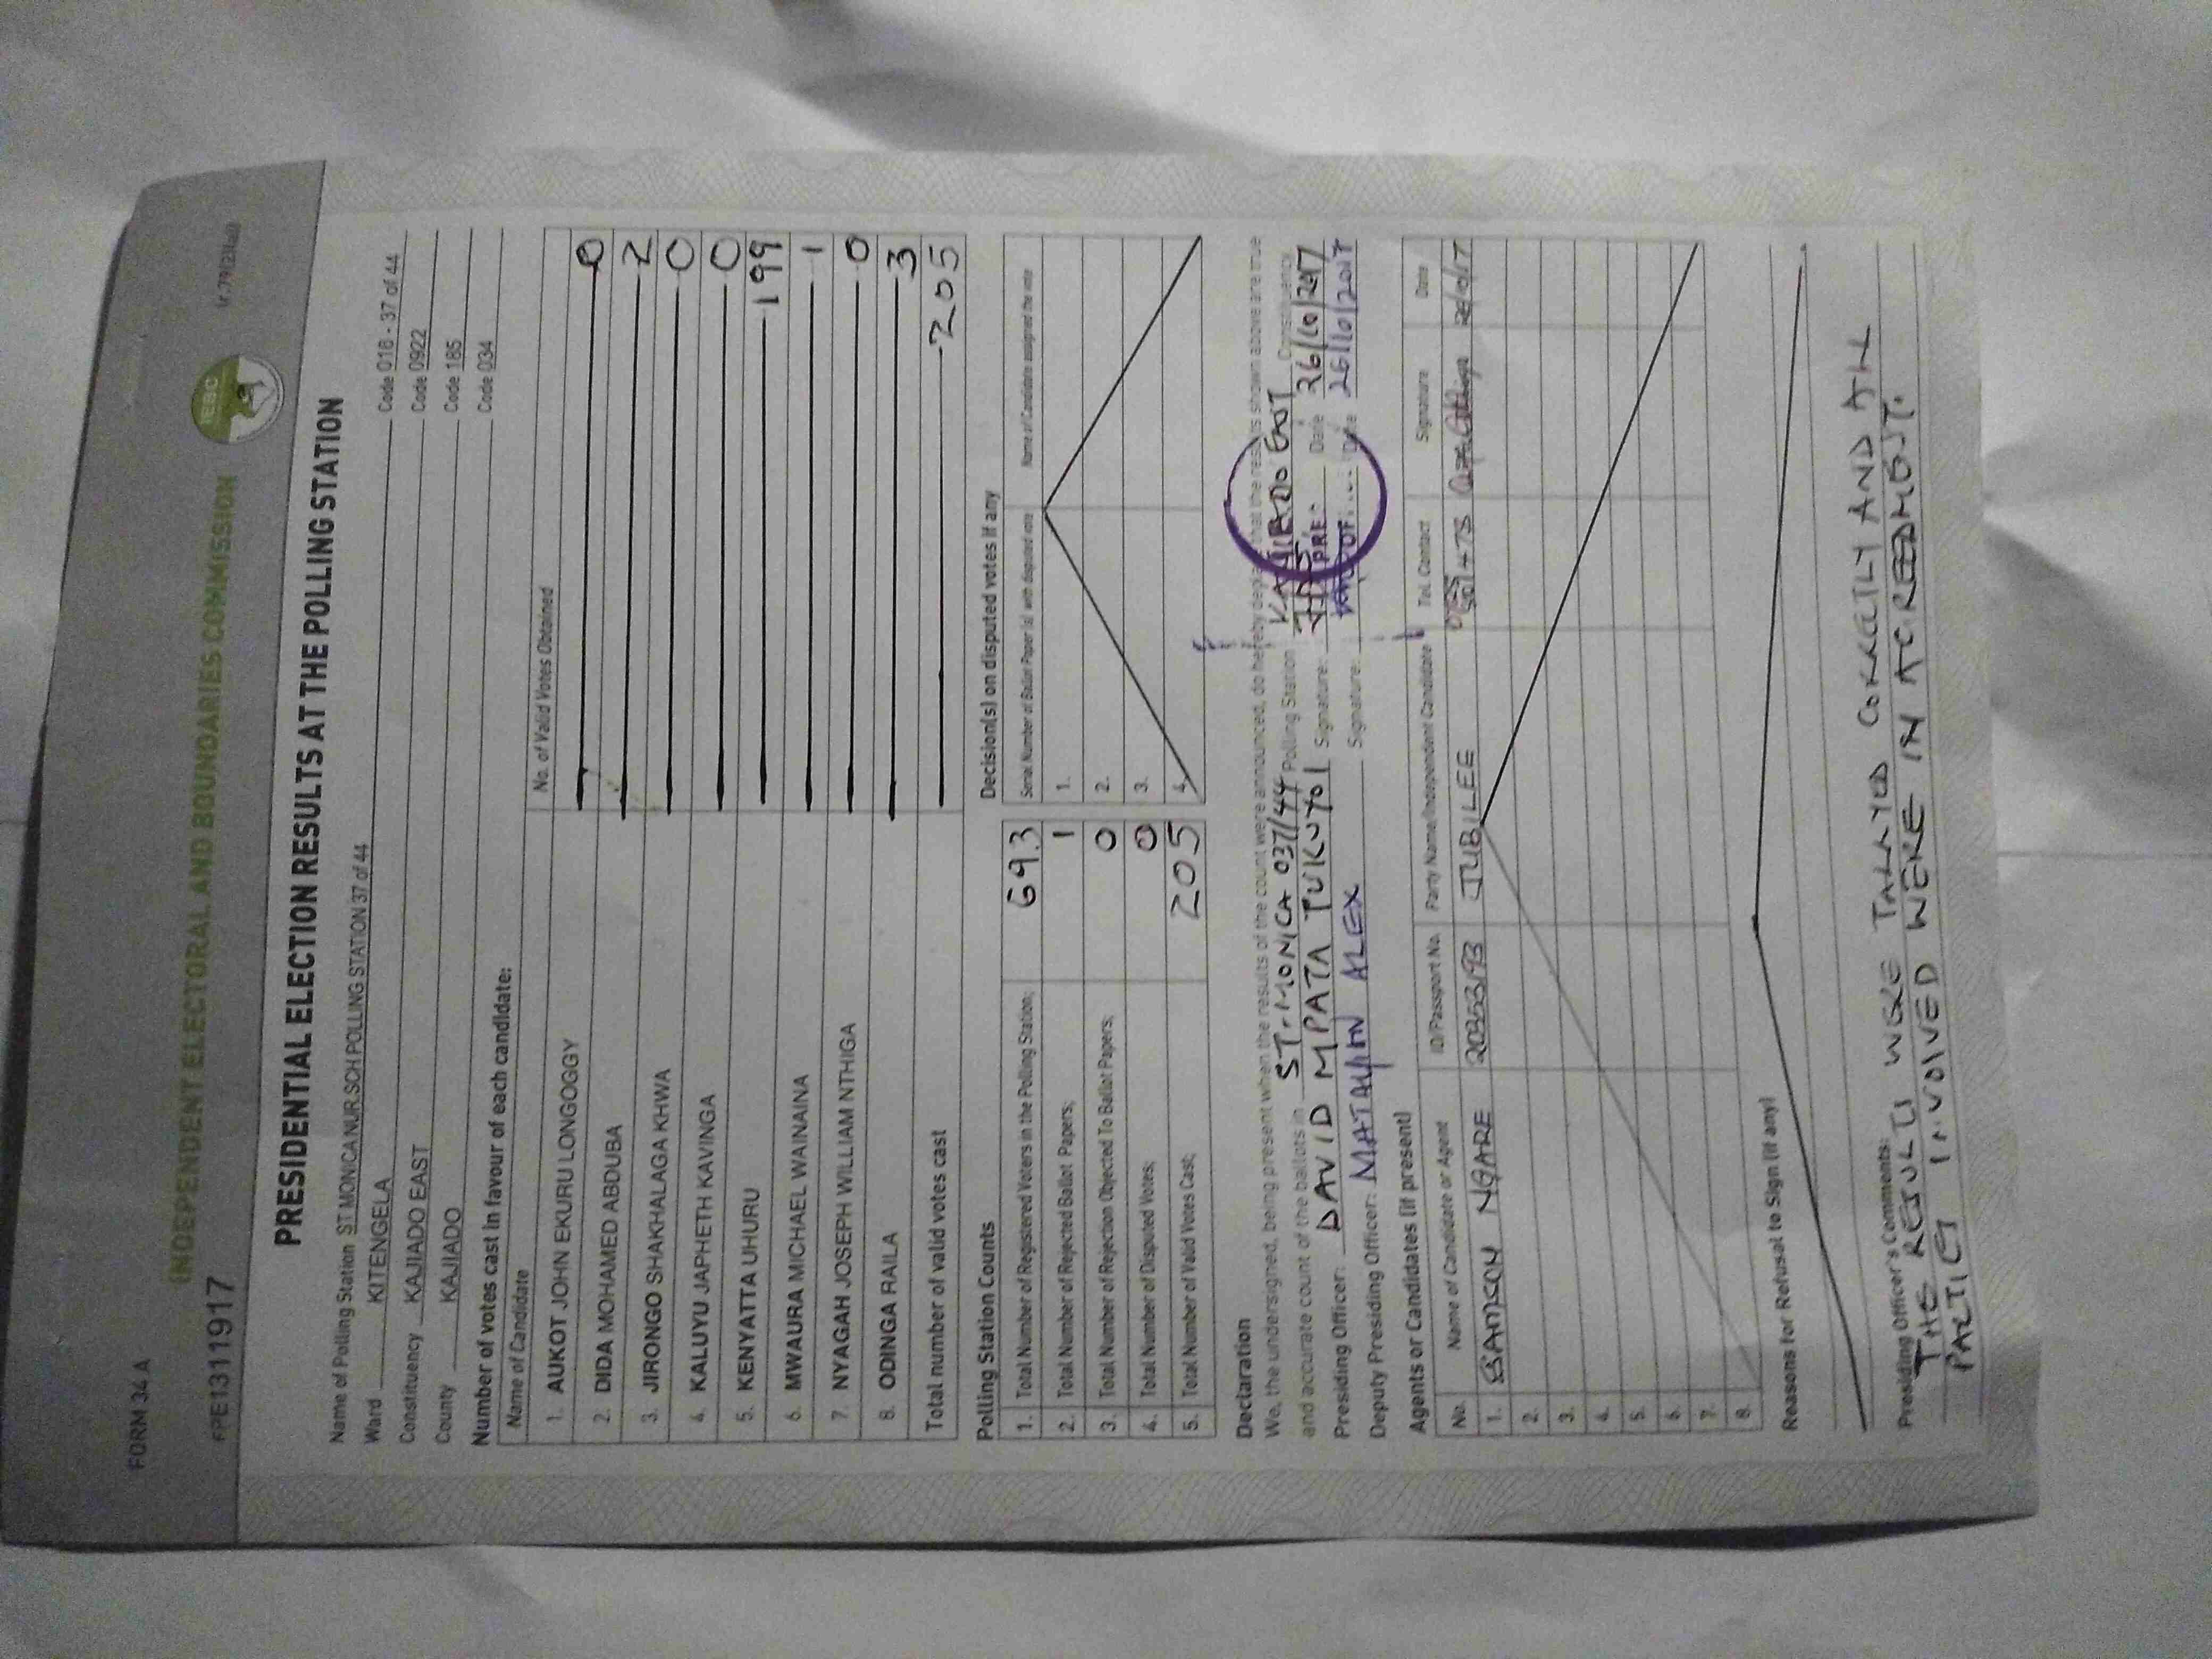 FORM 34 A
INDEPENDENT ELECTORAL AND BOUNDARIES COMMISSION
IEBC
FPE1311917
PRESIDENTIAL ELECTION RESULTS AT THE POLLING STATION
Name of Polling Station ST MONICA NUR.SCH POLLING STATION 37 of 44 Code 018 - 37 of 44
Ward KITENGELA Code 0922
Constituency KAJIADO EAST Code 185
County KAJIADO Code 034
Number of votes cast in favour of each candidate:
Name of Candidate No. of Valid Votes Obtained
1. AUKOT JOHN EKURU LONGOGGY 0
2. DIDA MOHAMED ABDUBA 2
3. JIRONGO SHAKHALAGA KHWA 0
4. KALUYU JAPHETH KAVINGA 0
5. KENYATTA UHURU 199
6. MWAURA MICHAEL WAINAINA 1
7. NYAGAH JOSEPH WILLIAM NTHIGA 0
8. ODINGA RAILA 3
Total number of valid votes cast 205
Polling Station Counts
1. Total Number of Registered Voters in the Polling Station; 693
2. Total Number of Rejected Ballot Papers; 1
3. Total Number of Rejection Objected To Ballot Papers; 0
4. Total Number of Disputed Votes; 0
5. Total Number of Valid Votes Cast; 205
Decision(s) on disputed votes if any
Serial Number of Ballot Paper (s) with disputed vote Name of Candidate assigned the vote
1.
2.
3.
4.
Declaration
We, the undersigned, being present when the results of the count were announced, do hereby declare that the results shown above are true
and accurate count of the ballots in ST. MONICA 037/44 Polling Station KAJIADO EAST Constituency
Presiding Officer: DAVID MPATA TUKUYOI Signature: Date 26/10/2017
Deputy Presiding Officer: ALEX Signature: Date 26/10/2017
Agents or Candidates (if present)
No. Name of Candidate or Agent ID/Passport No. Party Name/Independent Candidate Tel. Contact Signature Date
1. NGARE JUBILEE
2.
3.
4.
5.
6.
7.
8.
Reasons for Refusal to Sign (if any)
Presiding Officer's Comments:
THE RESULTS WERE TALLYED CORRECTLY AND ALL
PARTIES INVOLVED WERE IN AGREEDMENT.